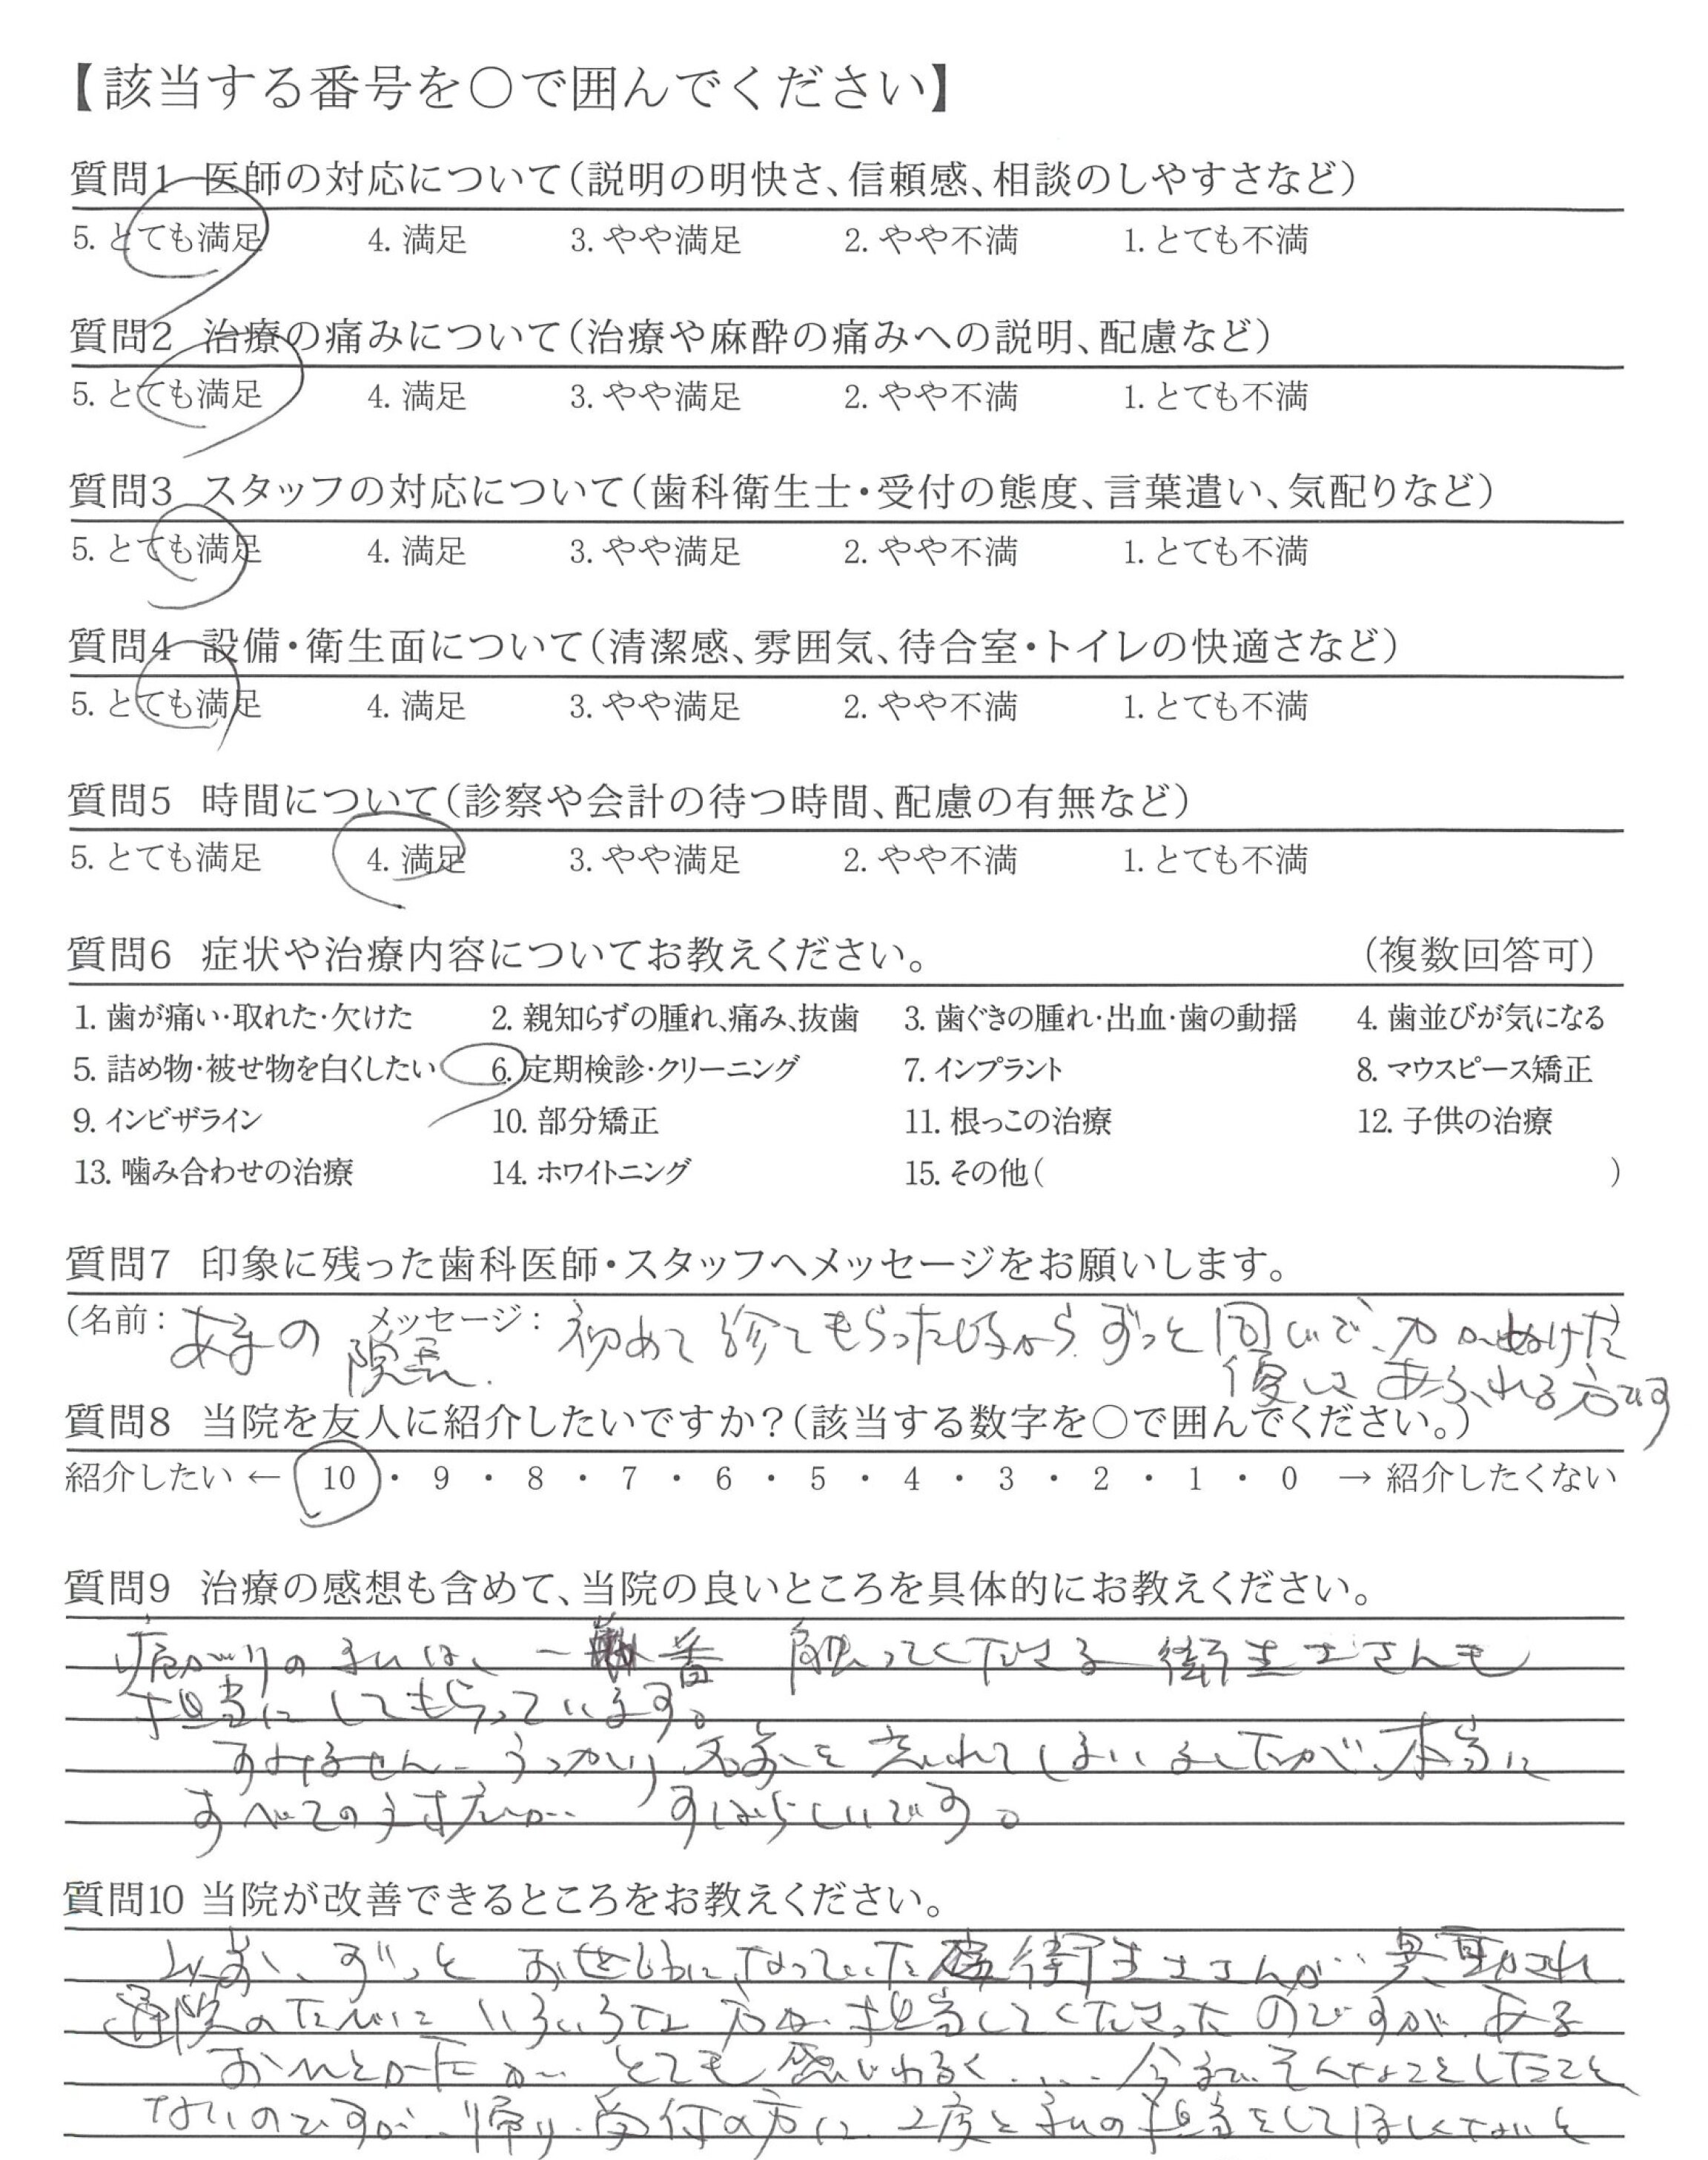 【該当する番号を○で囲んでください】
質問1 医師の対応について(説明の明快さ、信頼感、相談のしやすさなど)
5. とても満足 4. 満足 3. やや満足 2. やや不満 1. とても不満
質問2 治療の痛みについて(治療や麻酔の痛みへの説明、配慮など)
5. とても満足 4. 満足 3. やや満足 2. やや不満 1. とても不満
質問3 スタッフの対応について(歯科衛生士・受付の態度、言葉遣い、気配りなど)
5. とても満足 4. 満足 3. やや満足 2. やや不満 1. とても不満
質問4 設備・衛生面について(清潔感、雰囲気、待合室・トイレの快適さなど)
5. とても満足 4. 満足 3. やや満足 2. やや不満 1. とても不満
質問5 時間について(診察や会計の待つ時間、配慮の有無など)
5. とても満足 4. 満足 3. やや満足 2. やや不満 1. とても不満
質問6 症状や治療内容についてお教えください。 (複数回答可)
1. 歯が痛い・取れた・欠けた 2. 親知らずの腫れ、痛み、抜歯 3. 歯ぐきの腫れ・出血・歯の動揺 4. 歯並びが気になる
5. 詰め物・被せ物を白くしたい 6. 定期検診・クリーニング 7. インプラント 8. マウスピース矯正
9. インビザライン 10. 部分矯正 11. 根っこの治療 12. 子供の治療
13. 噛み合わせの治療 14. ホワイトニング 15. その他( )
質問7 印象に残った歯科医師・スタッフへメッセージをお願いします。
(名前: あまの 院長. メッセージ: 初めて診てもらった時からずっと同じで、力がぬけた
優しさあふれる方です
質問8 当院を友人に紹介したいですか?(該当する数字を○で囲んでください。)
紹介したい ← 10 ・ 9 ・ 8 ・ 7 ・ 6 ・ 5 ・ 4 ・ 3 ・ 2 ・ 1 ・ 0 → 紹介したくない
質問9 治療の感想も含めて、当院の良いところを具体的にお教えください。
痛がりの私は、一番 解ってくださる 衛生士さんも
担当にしてもらっています。
すみません うっかり 名前を忘れてしまいましたが、本当に
すべての対応が すばらしいです。
質問10 当院が改善できるところをお教えください。
以前、ずっと お世話になっていた 衛生士さんが 異動され
通院のたびに いろいろな方が 担当してくださったのですが、ある
おひとかたが とても 感じわるく…. 今まで そんなことをしたこと
ないのですが、帰り 受付の方に 2度と私の担当をしてほしくないと